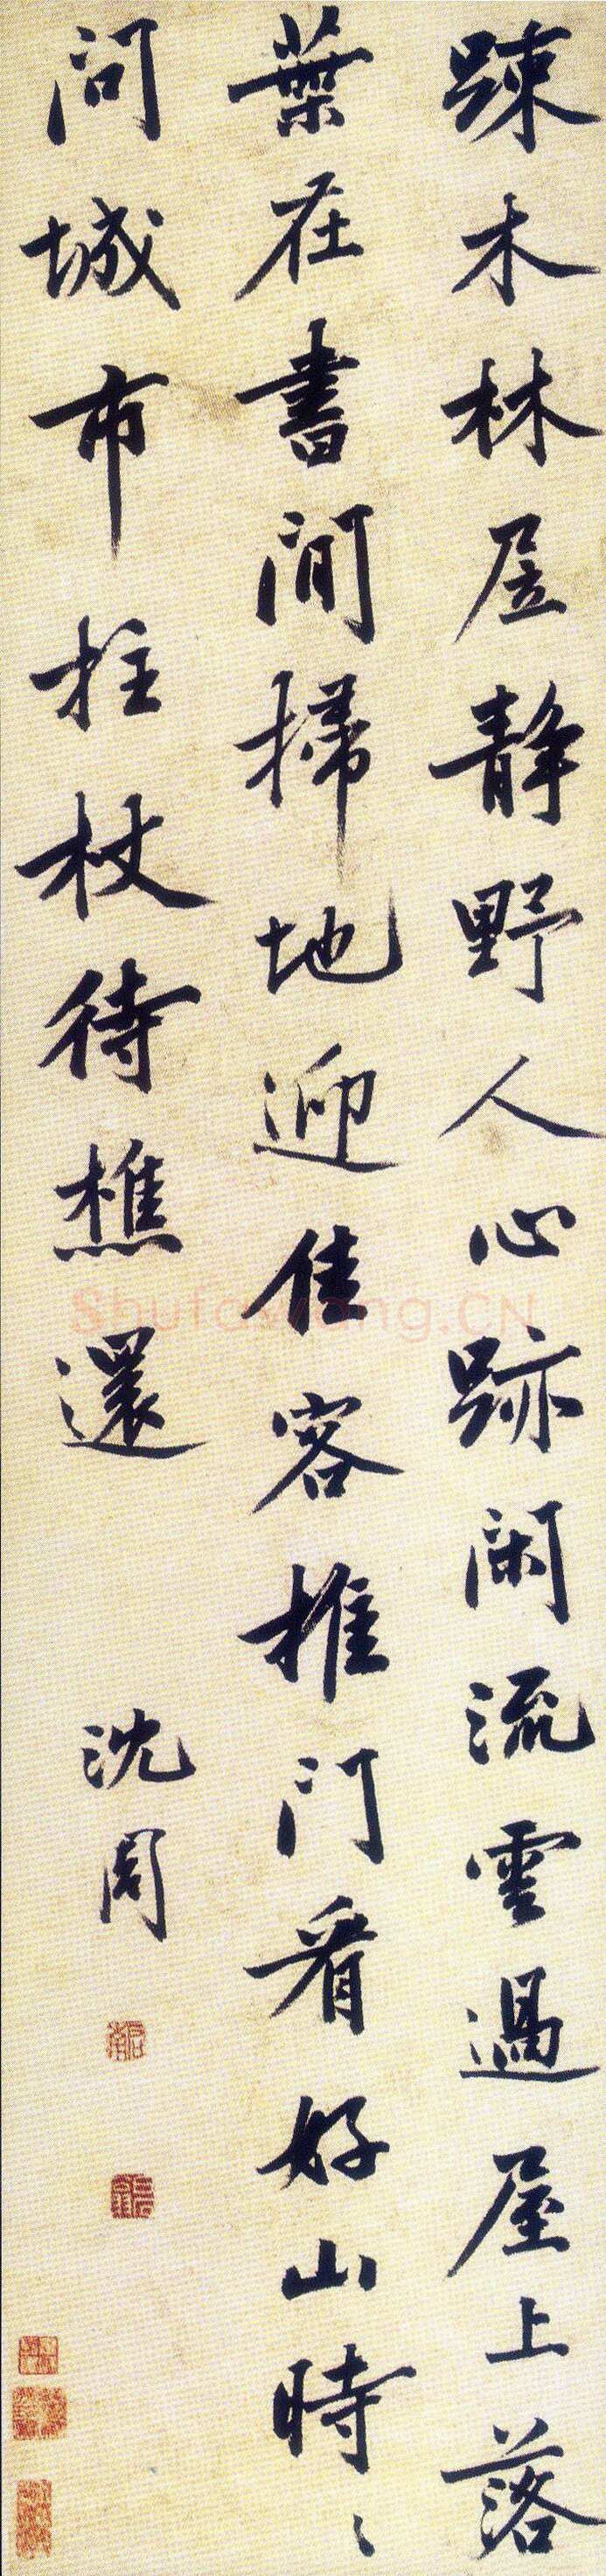 踈木林居静野人心跡閑流雲過屋上落
葉在書間掃地迎佳客推門看好山時〻
問城市拄杖待樵還
沈周
Shufawang.CN